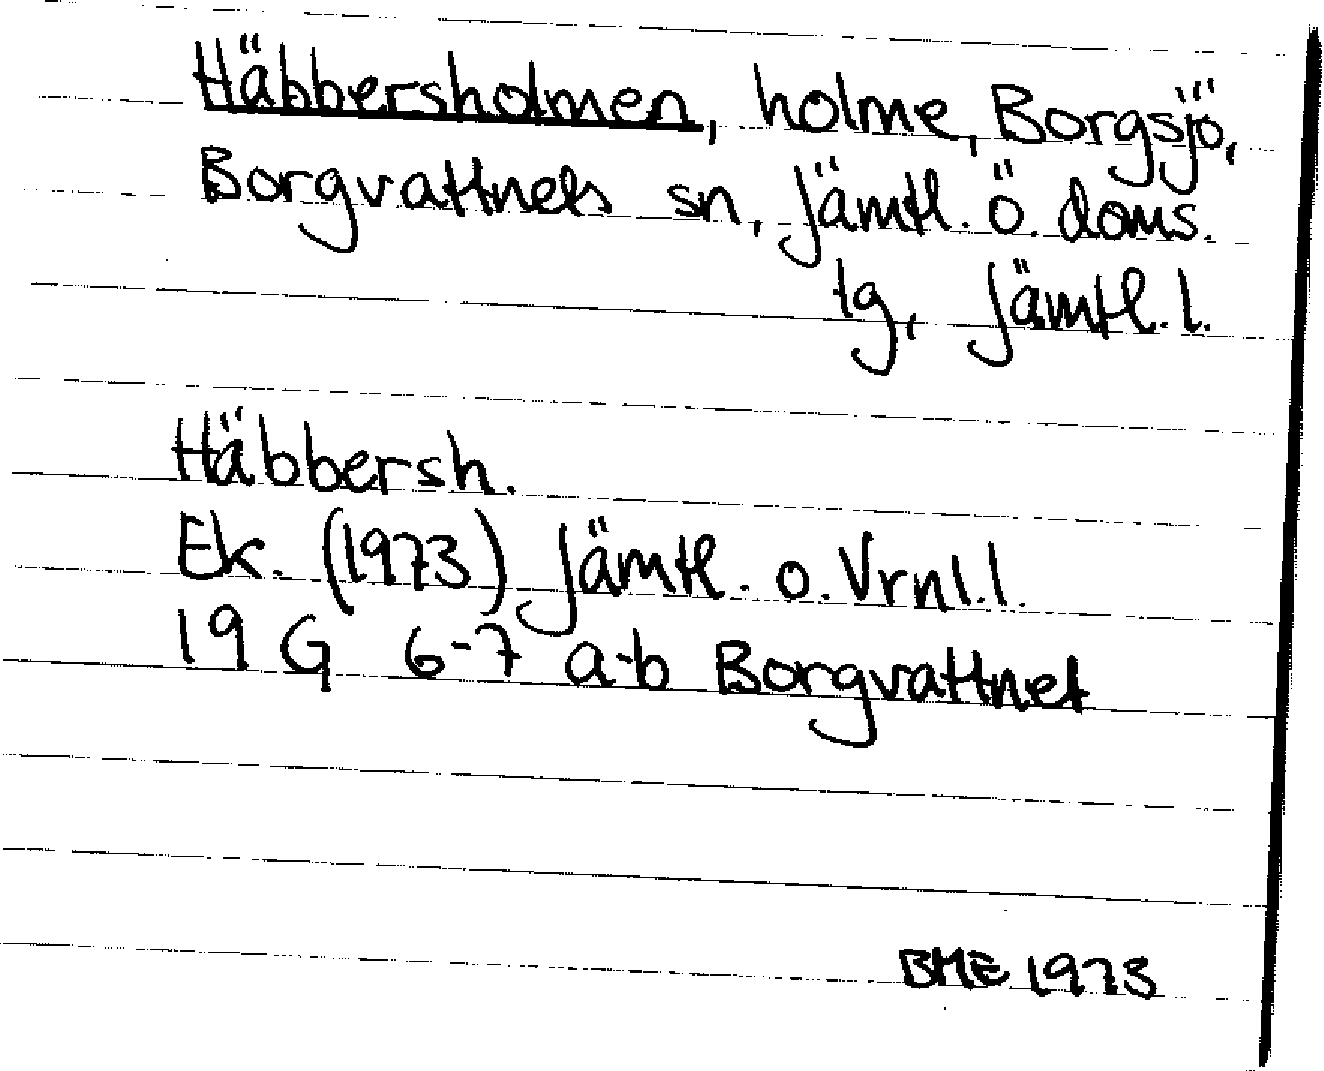 Häbbersholmen, holme, Borgsjö,
Borgvattnets sn, Jämtl. Ö. doms.
tg, Jämtl. l.
Häbbersh.
Ek. (1973) Jämtl. o. Vrnl. l.
19 G 6-7 a-b Borgvattnet
BME 1973